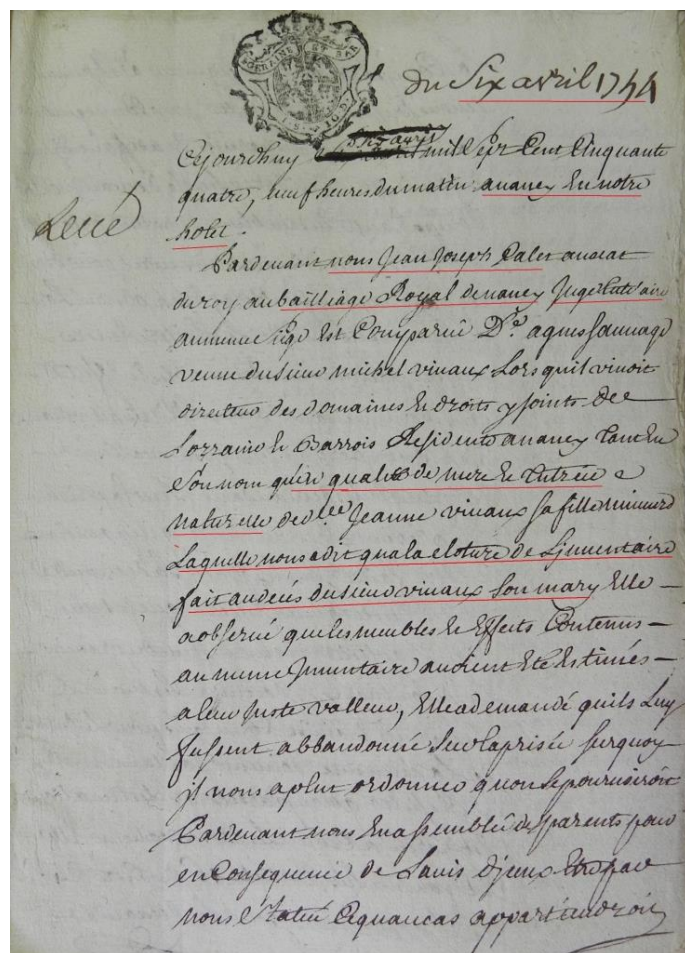 LORRAINE ET BAR
du Six avril 1754
Cejourdhuy mil Sept Cent Cinquante
quatre, neuf heures du matin a nancy En notre
hotel.
Pardevant nous Jean Joseph avocat
du roy au bailliage Royal de nancy Juge tutelaire
au meme Siege Est Comparüe De. agnes Sauvage
veuve du sieur michel vivaux Lors quil vivoit
directeur des domaines Et droits y joints de
Lorraine Et Barrois Residente a nancy tant En
Son nom qu'en qualité de mere Et tutrice
naturelle de dlle Jeanne vivaux sa fille mineure
Laquelle nous a dit qu'a la cloture de Linventaire
fait au deces du sieur vivaux Son mary Elle
a observé que les meubles Et Effects Contenus
au meme Inventaire avoient Eté Estimés
a leur juste valleur, Elle a demandé quils Luy
fussent abbandonné Sur la prisée surquoy
il nous a plut ordonner quon Se pourvoiroit
Pardevant nous En assemblée de parents pour
en Consequence de Lavis Diceux Etre par
nous Statué Ce quau cas appartiendroit